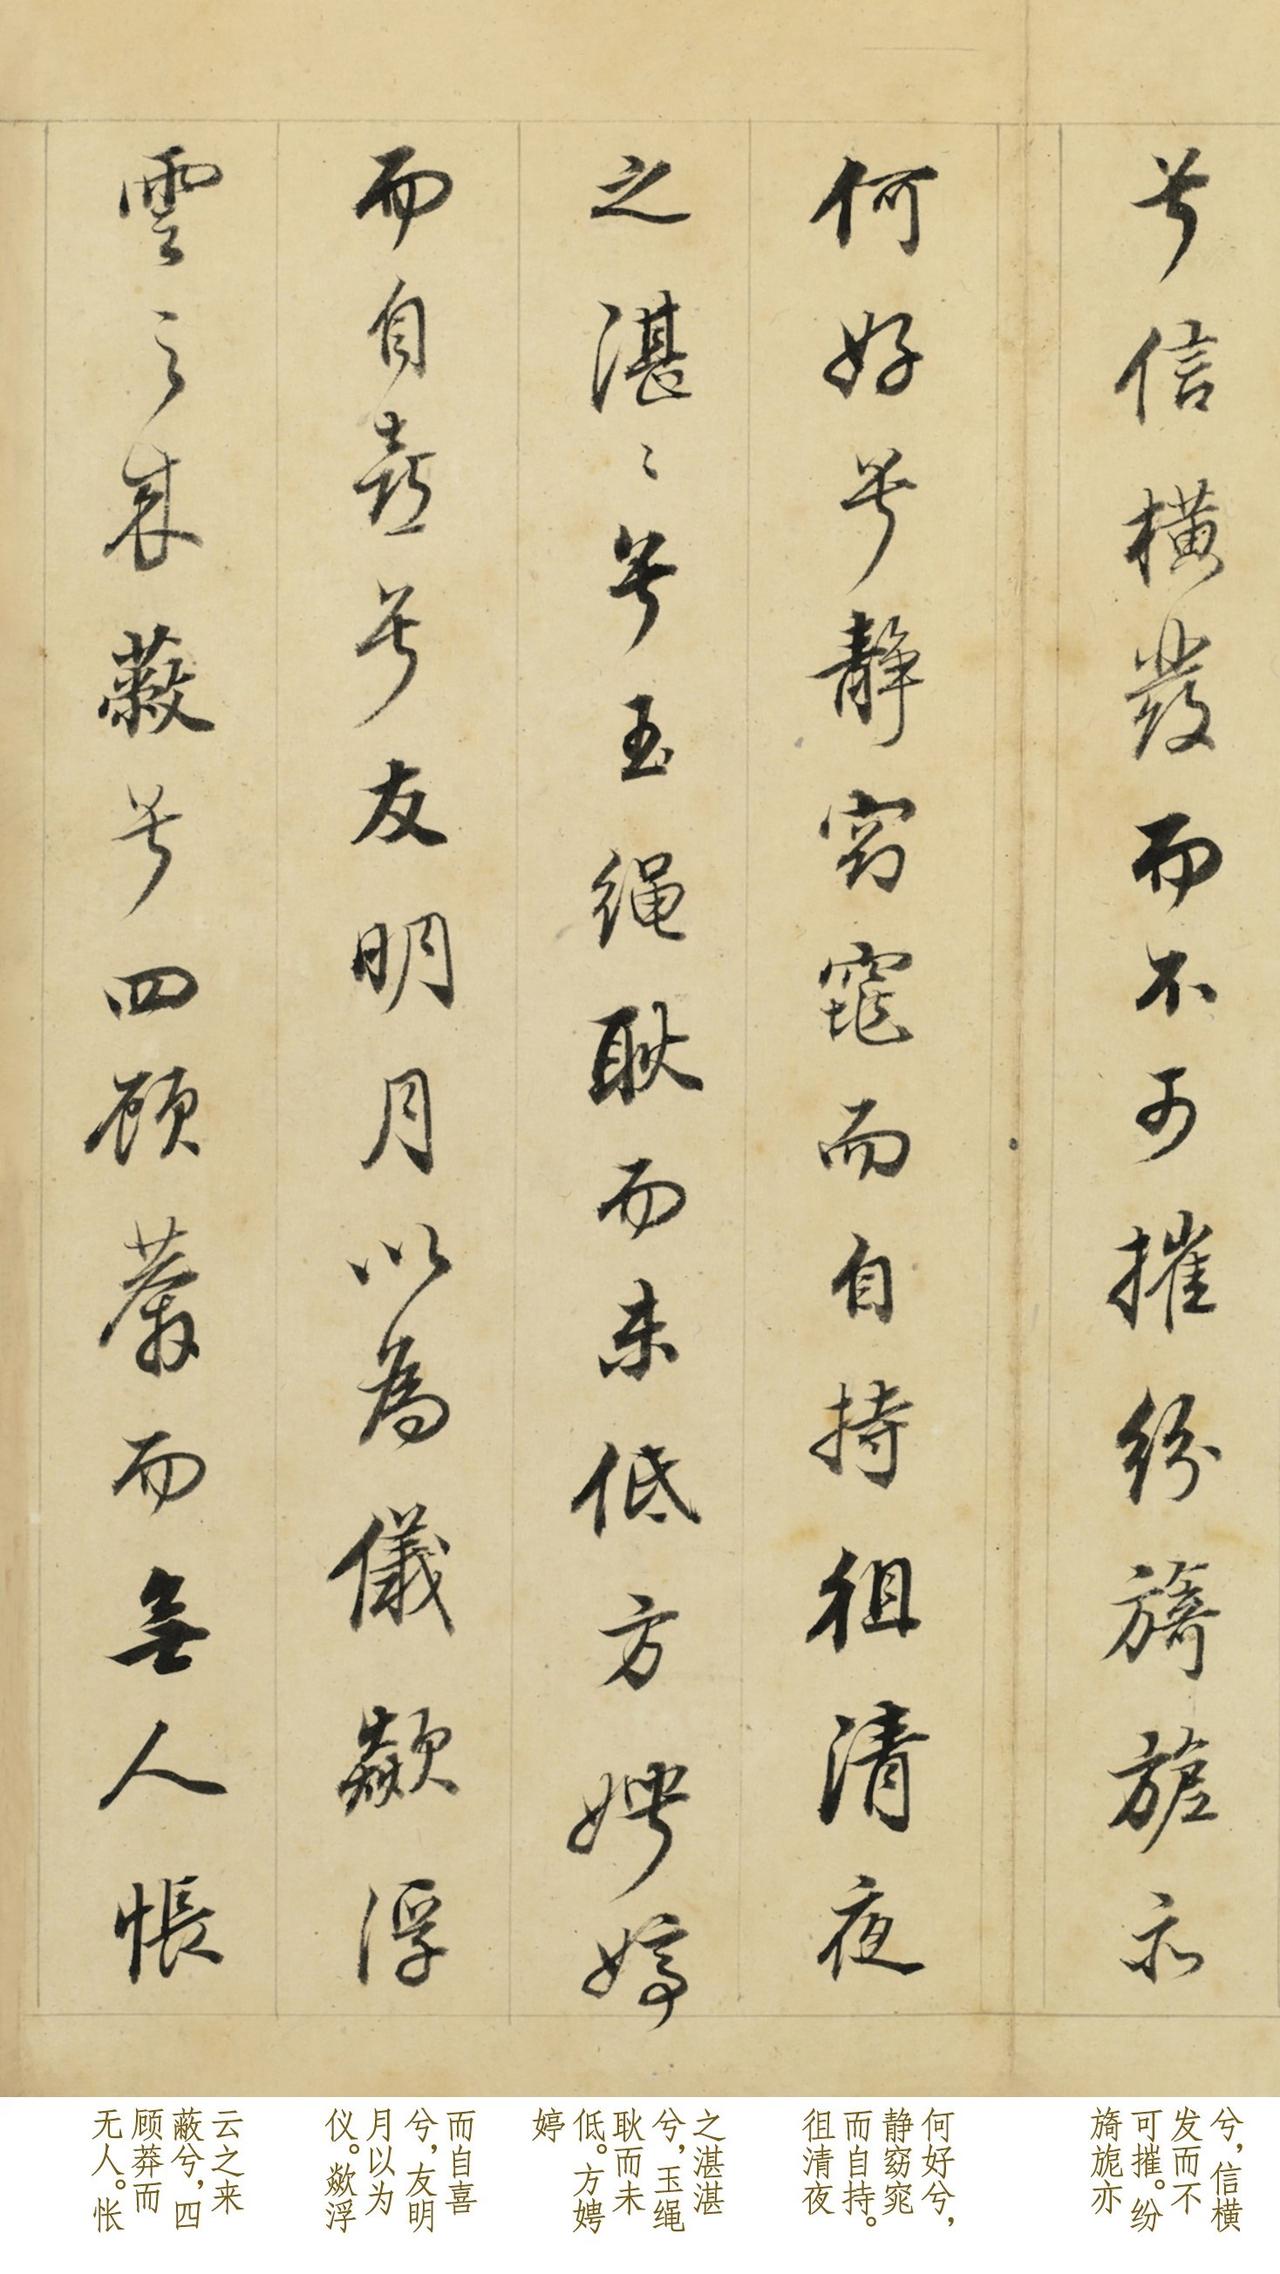 兮信橫發而不可摧紛旖旎亦
何好兮靜窈窕而自持徂清夜
之湛〻兮玉繩耿而未低方娉婷
而自喜兮友明月以為儀歘浮
雲之來蔽兮四顧莽而無人悵
兮，信横
发而不
可摧。纷
旖旎亦
何好兮，
静窈窕
而自持。
徂清夜
之湛湛
兮，玉绳
耿而未
低。方娉
婷
而自喜
兮，友明
月以为
仪。歘浮
云之来
蔽兮，四
顾莽而
无人。怅